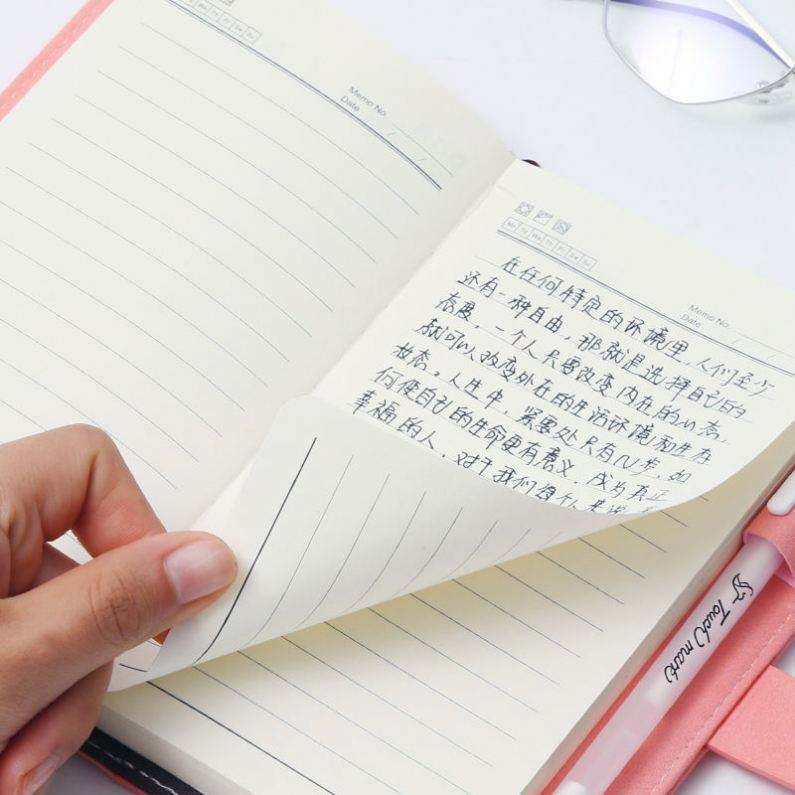 Memo No.
Date / /
Mo Tu We Th Fr Sa Su
Memo No.
Date / /
在任何特定的环境里,人们至少
还有一种自由,那就是选择自己的
态度,一个人只要改变内在的心态,
就可以改变外在的生活环境和生存
状态。人生中,紧要处只有几步,如
何使自己的生命更有意义,成为真正
幸福的人,对于我们每个人来说
Touch mark